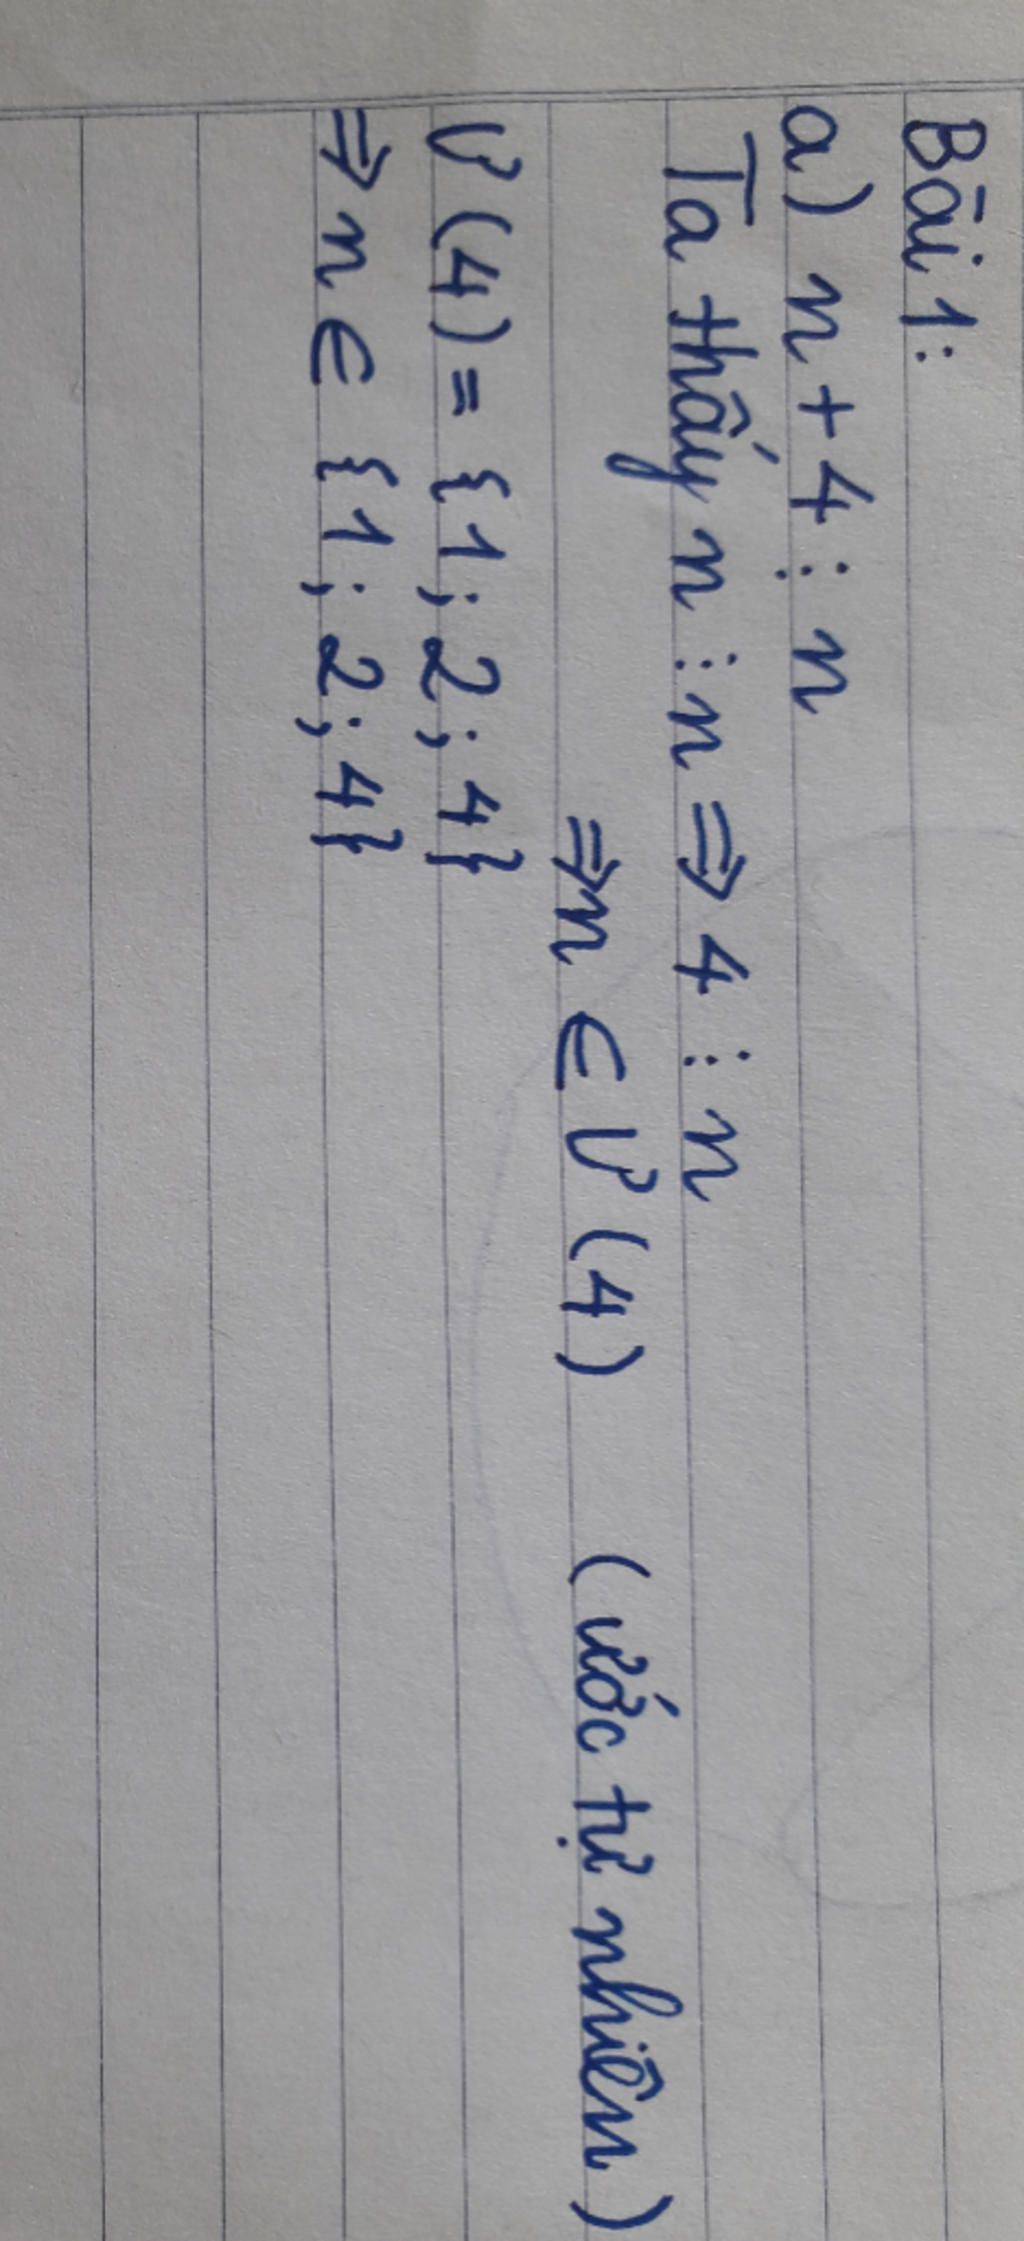 Bài 1:
a) n + 4 ⋮ n
Ta thấy n ⋮ n ⇒ 4 ⋮ n
⇒ n ∈ Ư (4) (ước tự nhiên)
Ư (4) = {1; 2; 4}
⇒ n ∈ {1; 2; 4}